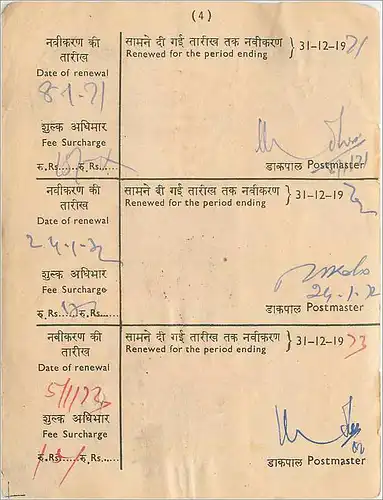 ( 4 )
नवीकरण की
तारीख
Date of renewal
8-1-71
शुल्क अधिभार
Fee Surcharge
रु.Rs......रु.Rs......
सामने दी गई तारीख तक नवीकरण
Renewed for the period ending } 31-12-1971
डाकपाल Postmaster
नवीकरण की
तारीख
Date of renewal
24-1-72
शुल्क अधिभार
Fee Surcharge
रु.Rs......रु.Rs......
सामने दी गई तारीख तक नवीकरण
Renewed for the period ending } 31-12-1972
24-1-72
डाकपाल Postmaster
नवीकरण की
तारीख
Date of renewal
5/1/73
शुल्क अधिभार
Fee Surcharge
रु.Rs......रु.Rs......
सामने दी गई तारीख तक नवीकरण
Renewed for the period ending } 31-12-1973
डाकपाल Postmaster